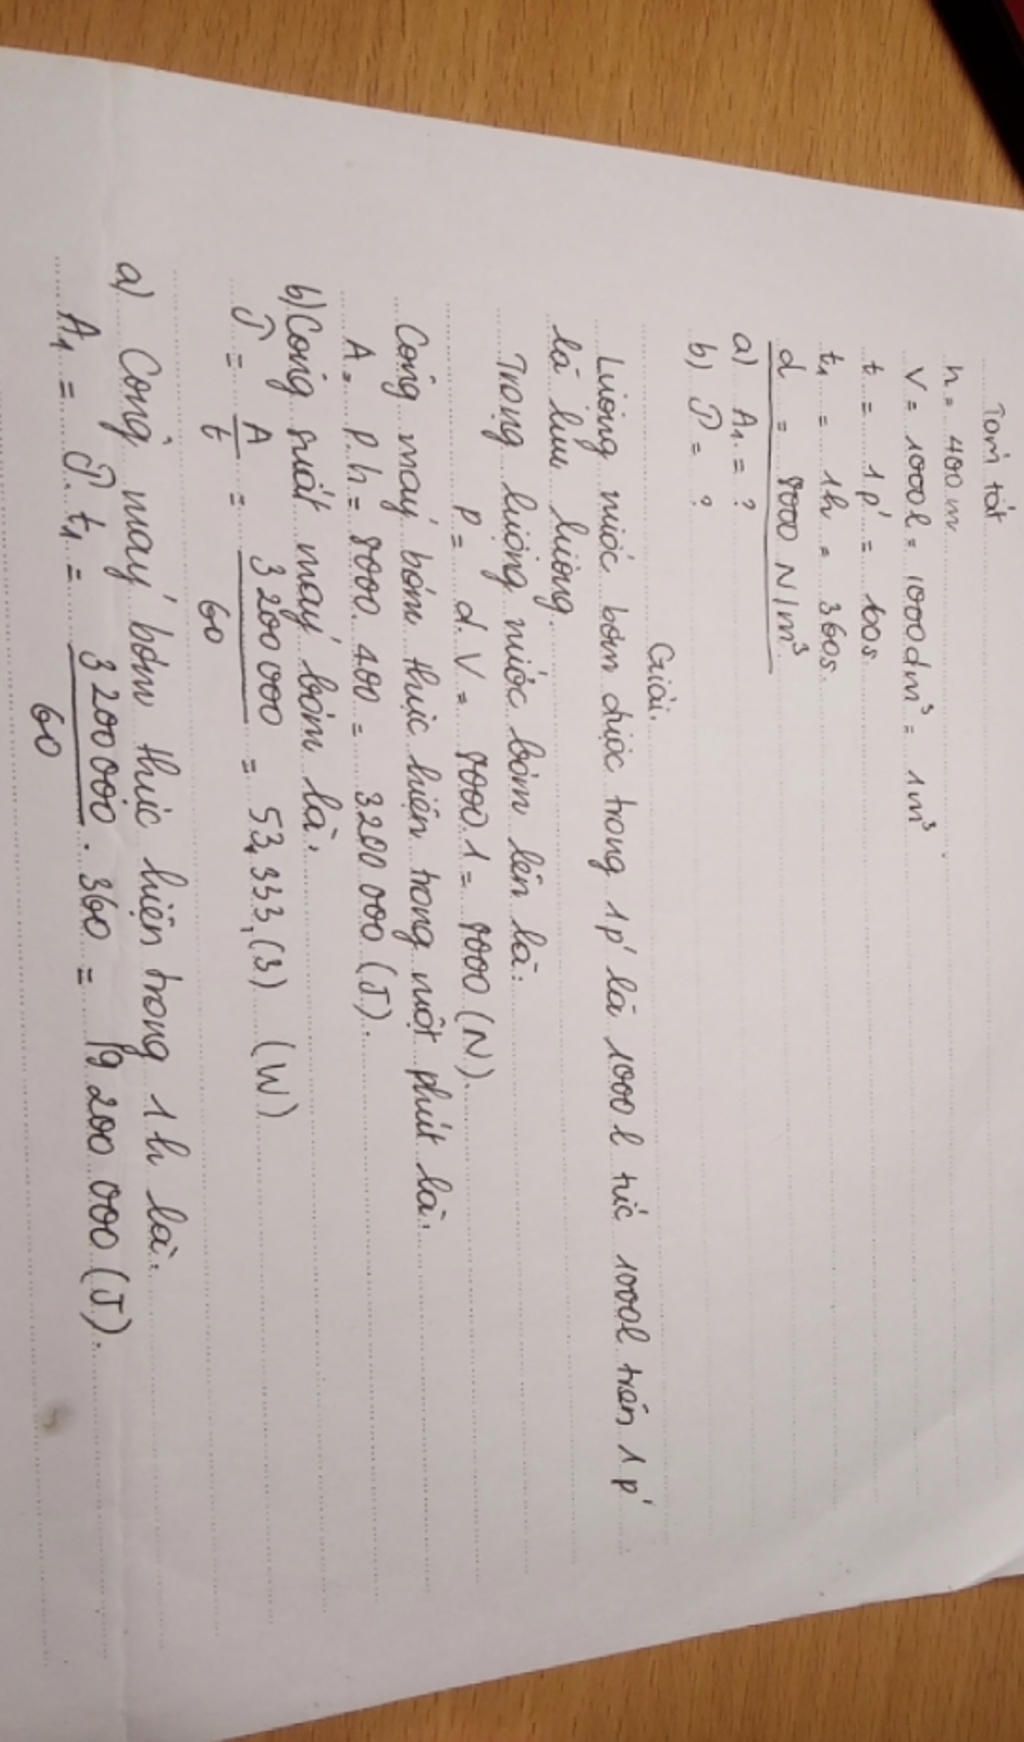 Tóm tắt
h = 400 m
V = 1000l = 1000dm³ = 1m³
t = 1p' = 60s
t₁ = 1h = 360s
d = 8000 N/m³
a) A₁ = ?
b) P = ?
Giải.
Lượng nước bơm được trong 1p' là 1000 l tức 1000l trên 1p'
là lưu lượng.
Trọng lượng nước bơm lên là:
P = d.V = 8000.1 = 8000 (N).
Công máy bơm thực hiện trong một phút là:
A = P.h = 8000.400 = 3200 000 (J).
b) Công suất máy bơm là:
P = A/t = 3 200 000/60 = 53,333,(3) (W)
a) Công máy bơm thực hiện trong 1h là:
A₁ = P.t₁ = 3 200 000/60 . 360 = 19 200 000 (J).